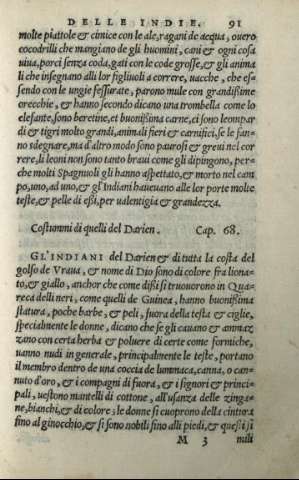 DELLE INDIE. 91
molte piattole & cimice con le ale, ragani de acqua, ouero
cocodrilli che mangiano de gli huomini, cani & ogni cosa
uiua, porci senza coda, gati con le code grosse, & gli anima
li che insegnano alli lor figliuoli a correre, uacche, che es-
sendo con le ungie fessurate, parono mule con grandissime
orecchie, & hanno secondo dicano una trombella come lo
elefante, sono beretine, et buonissima carne, ci sono leompar
di & tigri molto grandi, animali fieri & carnifici, se le fan-
no sdegnare, ma d'altro modo sono paurosi & greui nel cor
rere, li leoni non sono tanto braui come gli dipingono, per-
che molti Spagnuoli gli hanno aspettato, & morto nel cam
po, uno, ad uno, & gl'Indiani haueuano alle lor porte molte
teste, & pelle di essi, per ualentigia & grandezza.
Costumni di quelli del Darien. Cap. 68.
GL'INDIANI del Darien & di tutta la costa del
golfo de Vraua, & nome di Dio sono di colore fra liona-
to, & giallo, anchor che come dissi si truouorono in Qua-
reca delli neri, come quelli de Guinea, hanno buonissima
statura, poche barbe, & peli, fuora della testa & ciglie,
specialmente le donne, dicano che se gli cauano & ammaz
zano con certa herba & poluere di certe come formiche,
uanno nudi in generale, principalmente le teste, portano
il membro dentro de una coccia de lummaca, canna, o can-
nuto d'oro, & i compagni di fuora, & i signori & princi-
pali, uestono mantelli di cottone, all'usanza delle zinga-
ne, bianchi, & di colore; le donne si cuoprono della cintura
fino al ginocchio, & si sono nobili fino alli piedi, & questi si
M 3 mili